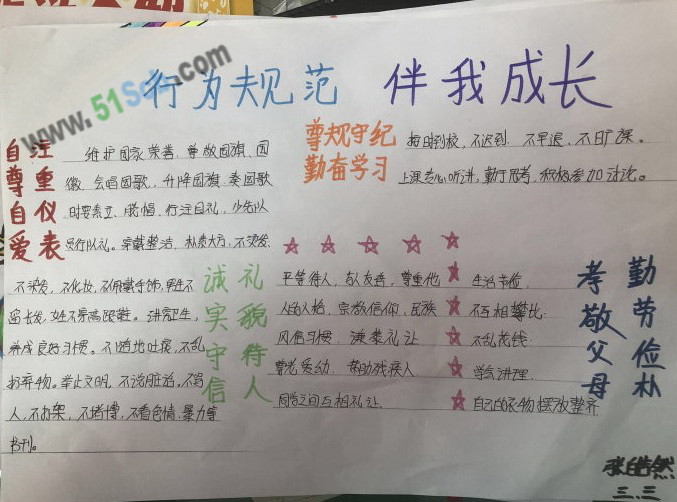 www.51Sxue.com
行为规范 伴我成长
自尊自爱
注重仪表
维护国家荣誉、尊敬国旗、国
徽、会唱国歌、升降国旗、奏国歌
时要肃立、脱帽、行注目礼、少先队
员行队礼。穿戴整洁、朴素大方、不烫发、
不染发、不化妆、不佩戴首饰,男生不
留长发,女生不穿高跟鞋。讲究卫生,
养成良好习惯。不随地吐痰、不乱
扔弃物。举止文明,不说脏话,不骂
人,不打架,不赌博,不看色情、暴力等
书刊。
尊规守纪
勤奋学习
按时到校,不迟到 不早退,不旷课。
上课专心听讲,勤于思考,积极参加讨论。
诚实守信
礼貌待人
平等待人,与人友善,尊重他
人的人格、宗教信仰、民族
风俗习惯,谦恭礼让
尊老爱幼 帮助残疾人
同学之间互相礼让.
生活节俭,
不互相攀比.
不乱花钱.
学会讲理.
自己的衣物摆放整齐
孝敬父母
勤劳俭朴
张皓然
三.三